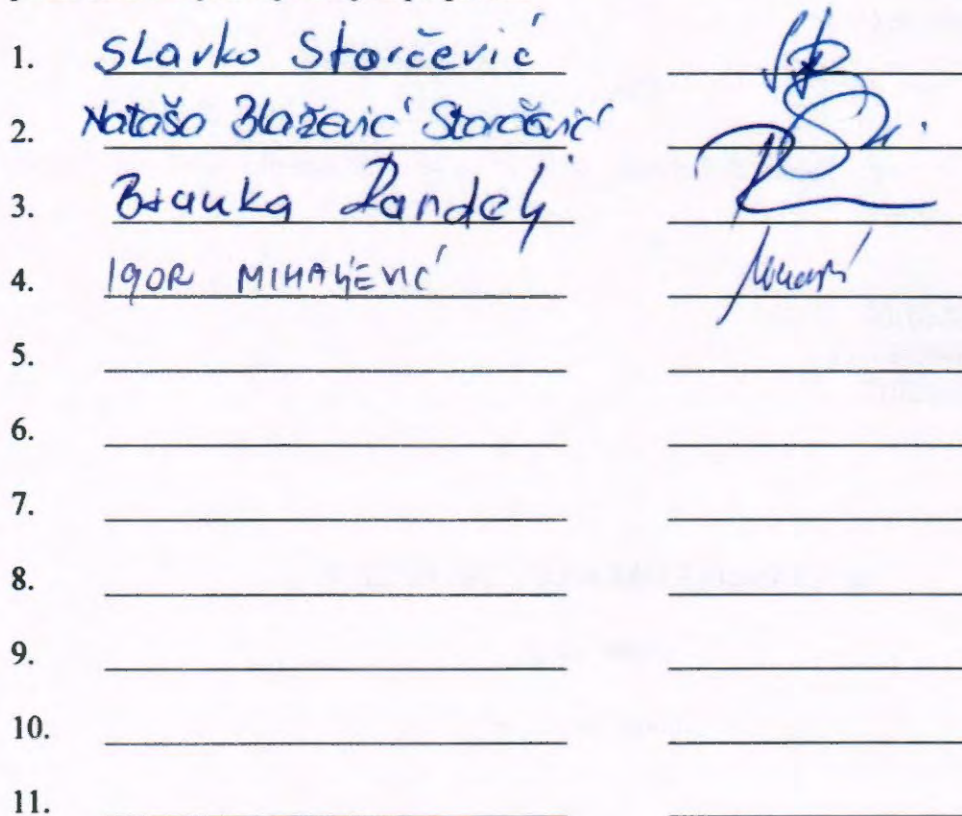 1. Slavko Starčević
2. Nataša Blažević Starčević
3. Branka Randelj
4. IGOR MIHALJEVIĆ
5.
6.
7.
8.
9.
10.
11.